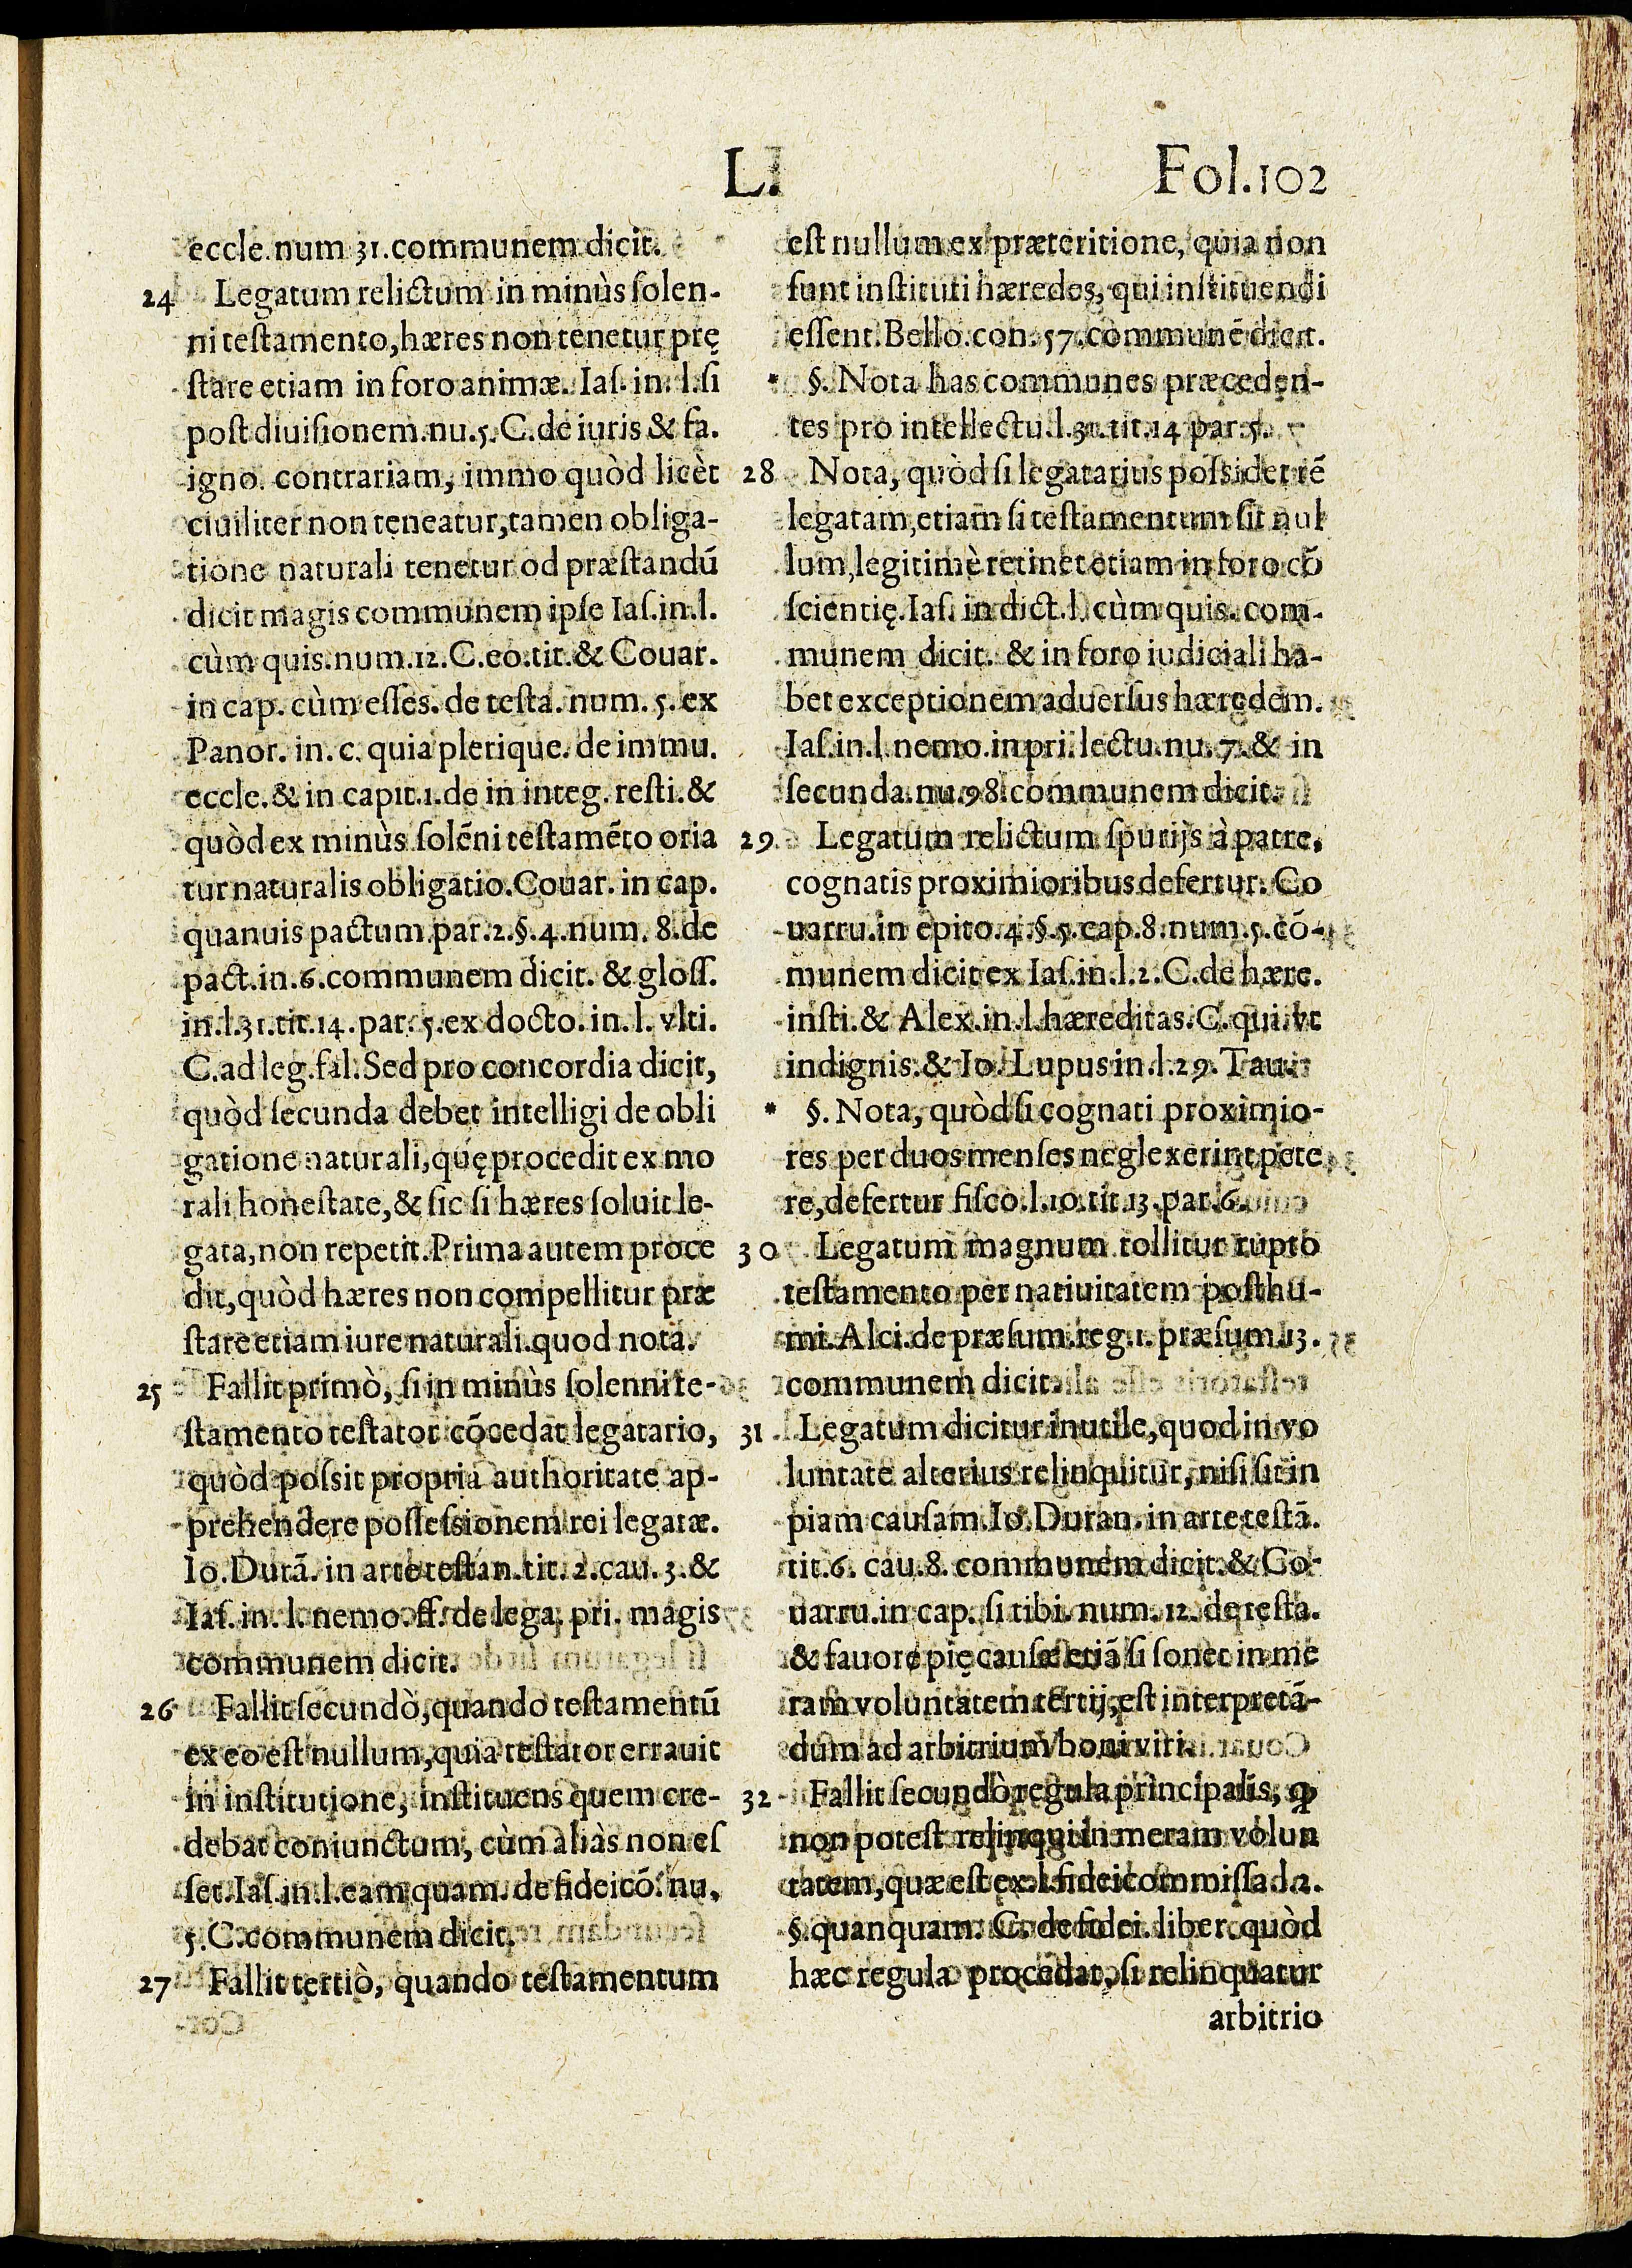 L.
Fol.102
eccle.num 31.communem dicit.
24 Legatum relictum in minùs ſolen-
ni teſtamento,hæres non tenetur prę
ſtare etiam in foro animæ. Iaſ. in. l.ſi
poſt diuiſionem.nu.5. C.de iuris & fa.
igno. contrariam, immo quòd licèt
ciuiliter non teneatur,tamen obliga-
tione naturali tenetur od præſtandũ
dicit magis communem ipſe Iaſ.in.l.
cùm quis.num.12.C.eo.tit.& Couar.
in cap. cùm eſſes. de teſta. num. 5. ex
Panor. in. c. quia plerique. de immu.
eccle.& in capit.1.de in integ. reſti.&
quòd ex minùs ſolẽni teſtamẽto oria
tur naturalis obligatio.Couar. in cap.
quanuis pactum.par.2.§.4.num. 8.de
pact.in.6.communem dicit. & gloſſ.
in.l.31.tit.14.par.5.ex docto. in. l. vlti.
C.ad leg.fal.Sed pro concordia dicit,
quòd ſecunda debet intelligi de obli
gatione naturali,quę procedit ex mo
rali honeſtate,& ſic ſi hæres ſoluit le-
gata,non repetit.Prima autem proce
dit,quòd hæres non compellitur præ
ſtare etiam iure naturali.quod nota.
25 Fallit primò, ſi in minùs ſolenni te-
ſtamento teſtator cõcedat legatario,
quòd poſsit propria authoritate ap-
prehendere poſſeſsionem rei legatæ.
Io.Durã. in arte teſtan.tit. 2.cau. 3.&
Iaſ. in. l. nemo.ff. de lega. pri. magis
communem dicit.
26 Fallit ſecundò,quando teſtamentũ
ex eo eſt nullum,quia teſtator errauit
in inſtitutione, inſtituens quem cre-
debat coniunctum, cùm aliàs non eſ
ſet.Iaſ.in.l.eam quam. de fideicõ. nu.
5.C.communem dicit.
27 Fallit tertiò, quando teſtamentum
eſt nullum ex præteritione, quia non
ſunt inſtituti hæredes, qui inſtituendi
eſſent.Bello.con.57.communẽ dicit.
* §. Nota has communes præceden-
tes pro intellectu.l.31.tit.14 par.5.
28 Nota, quòd ſi legatarius poſsidet rẽ
legatam,etiam ſi teſtamentum ſit nul
lum,legitimè retinet etiam in foro cõ
ſcientię.Iaſ. in dict.l. cùm quis. com-
munem dicit. & in foro iudiciali ha-
bet exceptionem aduerſus hæredem.
Iaſ.in.l.nemo.in pri.lectu.nu.7.& in
ſecunda.nu.98.communem dicit.
29 Legatum relictum ſpurijs à patre,
cognatis proximioribus defertur. Co
uarru.in epito.4.§.5.cap.8.num.5.cõ-
munem dicit ex Iaſ.in.l.2.C.de hære.
inſti.& Alex.in.l.hæreditas.C.qui.vt
indignis.& Io. Lupus in.l.29. Tau.
* §. Nota, quòd ſi cognati proximio-
res per duos menſes neglexerint pete
re,defertur fiſco.l.10.tit.13.par.6.
30 Legatum magnum tollitur rupto
teſtamento per natiuitatem poſthu-
mi.Alci.de præſum.reg.1.præſum.13.
communem dicit.
31 Legatum dicitur inutile,quod in vo
luntate alterius relinquitur, niſi ſit in
piam cauſam.Io.Duran.in arte teſtã.
tit.6. cau.8. communem dicit.& Co-
uarru.in cap. ſi tibi. num. 12. de teſta.
& fauore pię cauſæ etiã ſi ſonet in me
ram voluntatem tertij,eſt interpretã-
dum ad arbitrium boni viri.
32 Fallit ſecundò regula principalis, ꝙ
non poteſt relinqui in meram volun
tatem,quæ eſt ex.l.fideicommiſſa.l.2.
§.quanquam. C. de fidei. liber. quòd
hæc regula procedat, ſi relinquatur
arbitrio